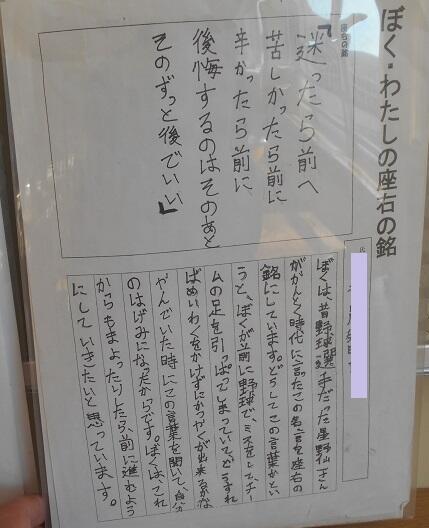 ぼく・わたしの座右の銘
座右の銘
「迷ったら前へ
苦しかったら前に
辛かったら前に
後悔するのはそのあと
そのずっと後でいい」
ぼくは、昔野球選手だった星野仙一さん
ががんとく時代に言ったこの名言を座右の
銘にしています。どうしてこの言葉かとい
うと、ぼくが前に野球で、ミスをしてチー
ムの足を引っぱってしまっていてどうすれ
ばめいわくをかけずにかつやくが出来るかな
やんでいた時にこの言葉を聞いて、自分
のはげみになったからです。ぼくは、これ
からもまよったりしたら、前に進むよう
にしていきたいと思っています。